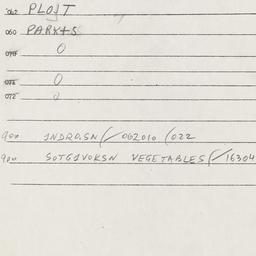 062 PLOJT
060 PARK+S
070 0
071 0
072 0
900 INDRO.SN(/062010 (022
900 SOTGIVOKSN VEGETABLES(/16304